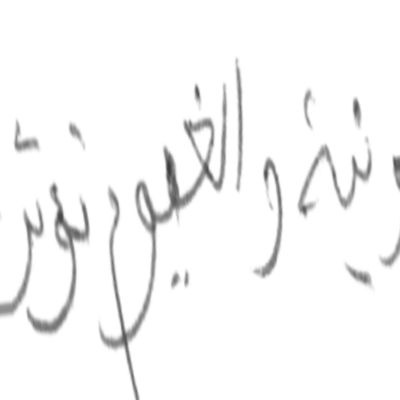 ونية والغيوم تؤثر